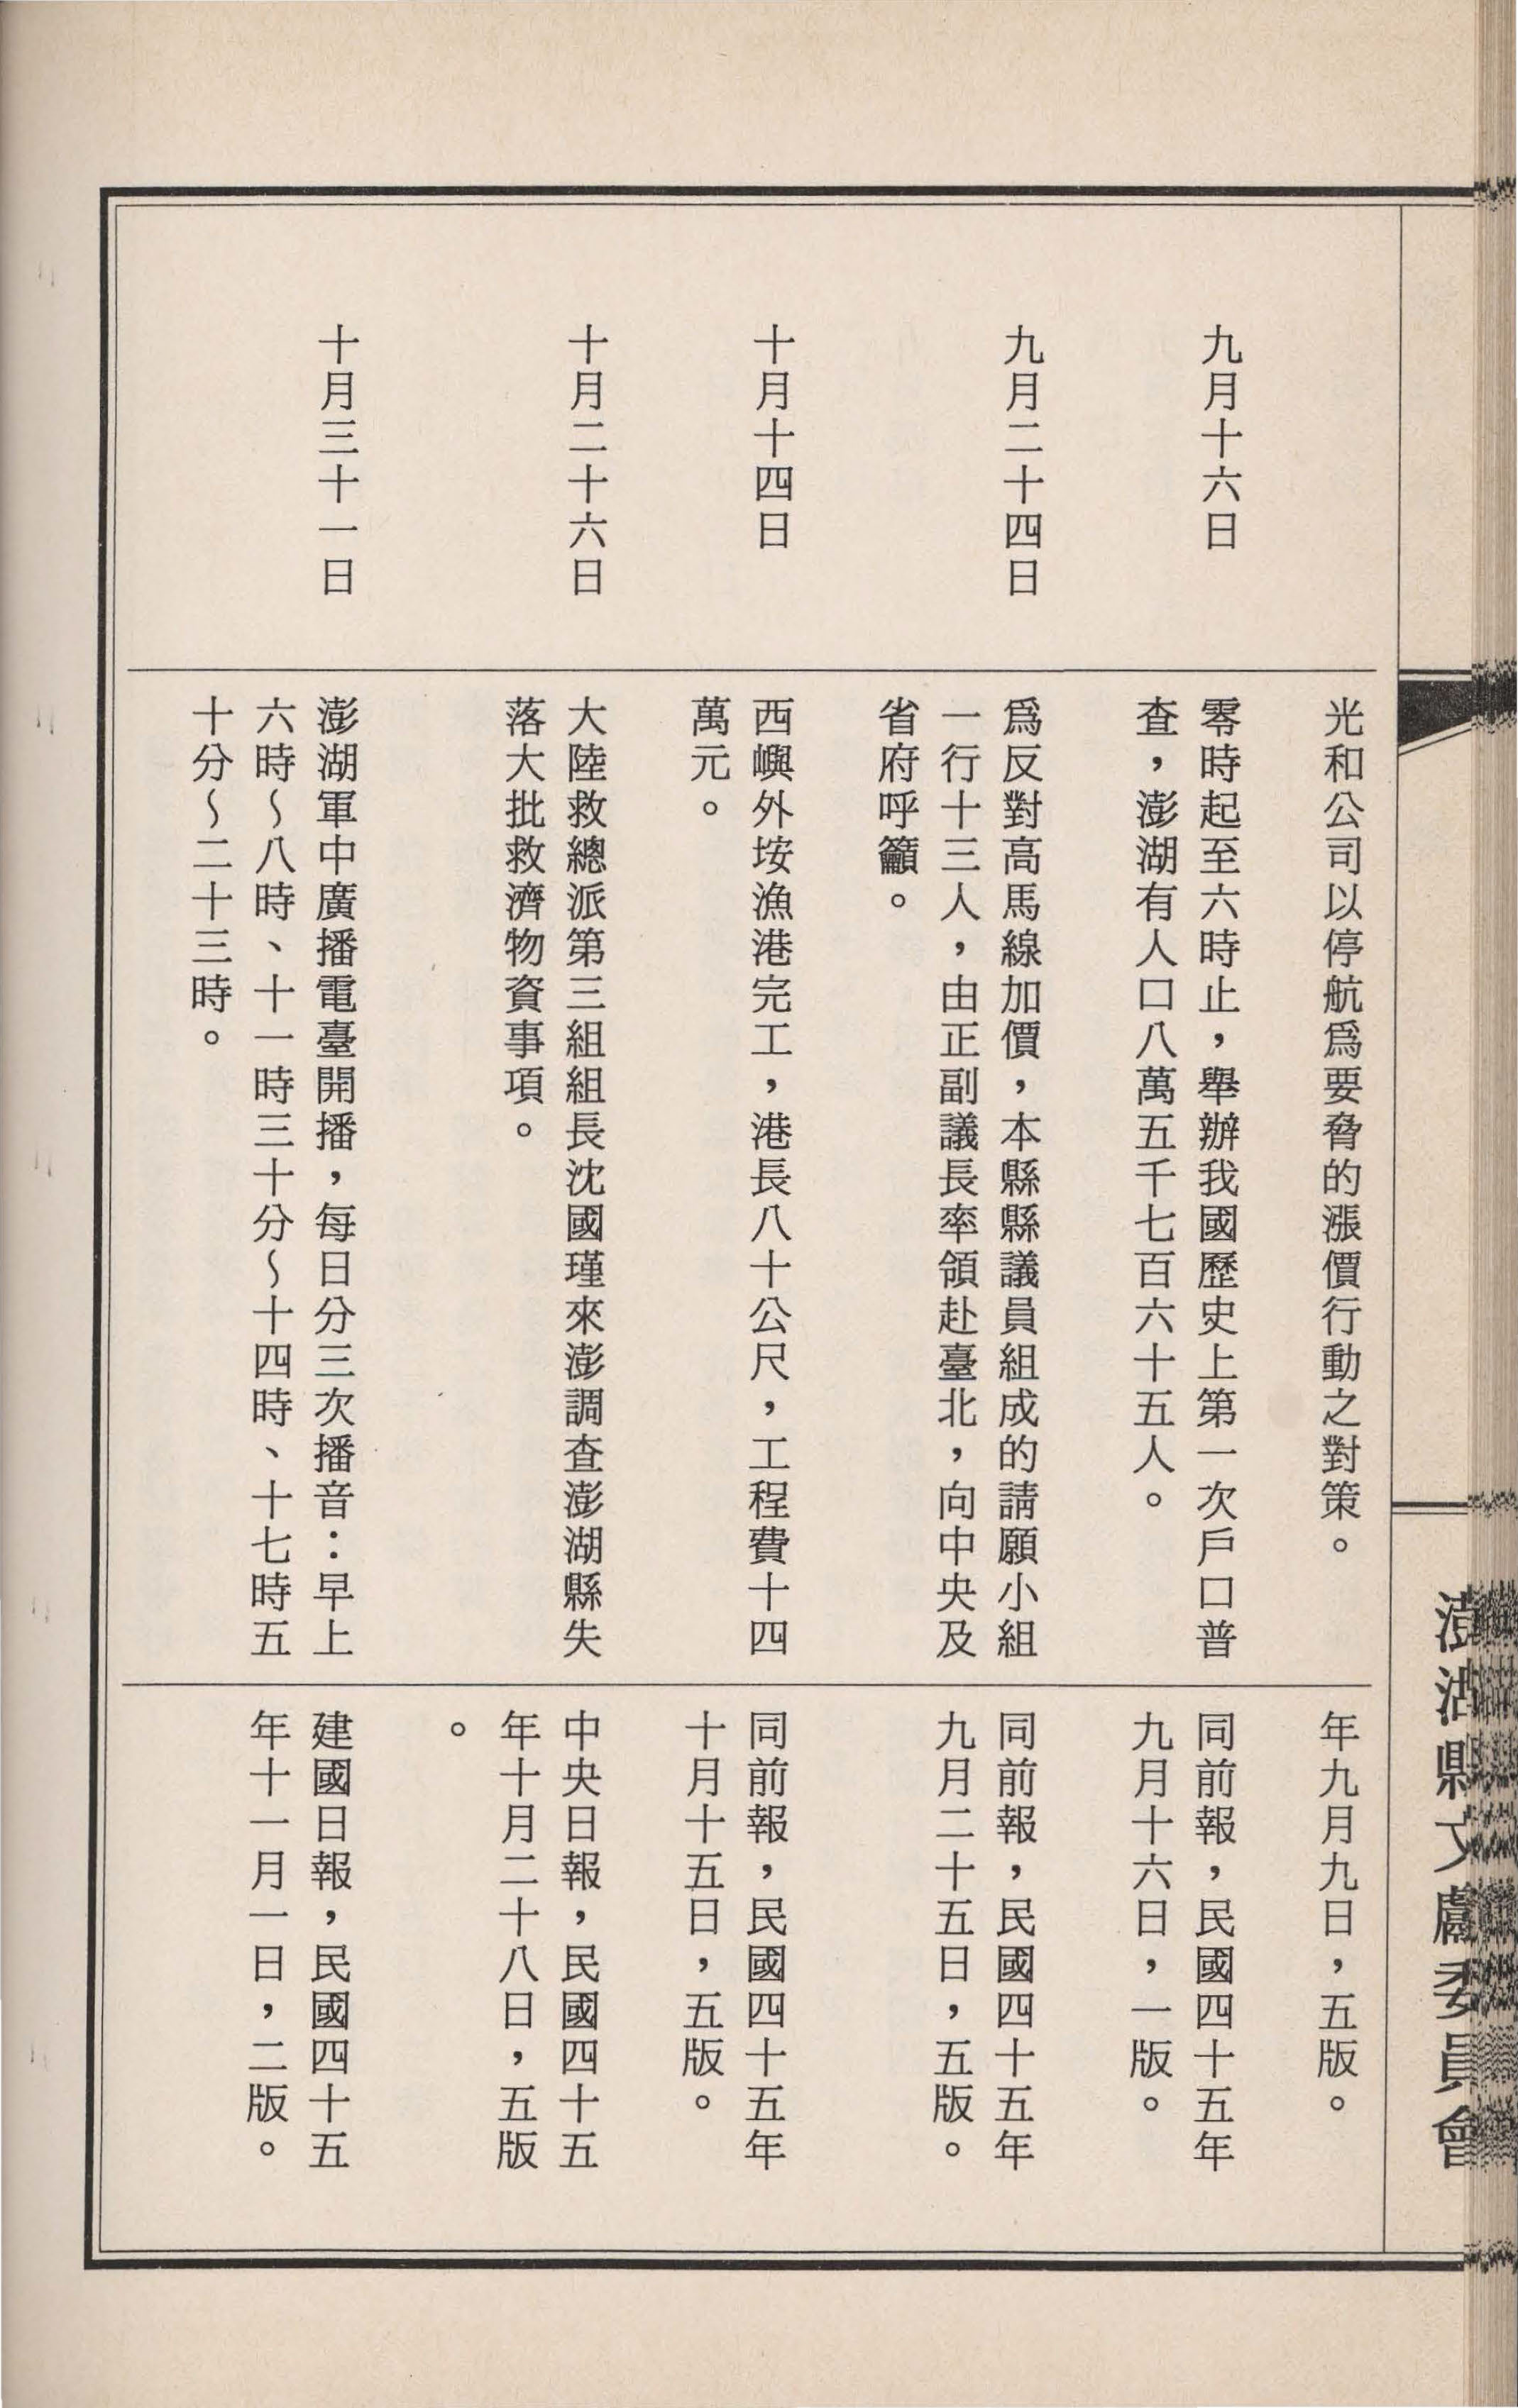 澎湖縣文獻委員會
光和公司以停航爲要脅的漲價行動之對策。
年九月九日，五版。
九月十六日
零時起至六時止，舉辦我國歷史上第一次戶口普
查，澎湖有人口八萬五千七百六十五人。
同前報，民國四十五年
九月十六日，一版。
九月二十四日
爲反對高馬線加價，本縣縣議員組成的請願小組
一行十三人，由正副議長率領赴臺北，向中央及
省府呼籲。
同前報，民國四十五年
九月二十五日，五版。
十月十四日
西嶼外垵漁港完工，港長八十公尺，工程費十四
萬元。
同前報，民國四十五年
十月十五日，五版。
十月二十六日
大陸救總派第三組組長沈國瑾來澎調查澎湖縣失
落大批救濟物資事項。
中央日報，民國四十五
年十月二十八日，五版
。
十月三十一日
澎湖軍中廣播電臺開播，每日分三次播音：早上
六時～八時、十一時三十分～十四時、十七時五
十分～二十三時。
建國日報，民國四十五
年十一月一日，二版。